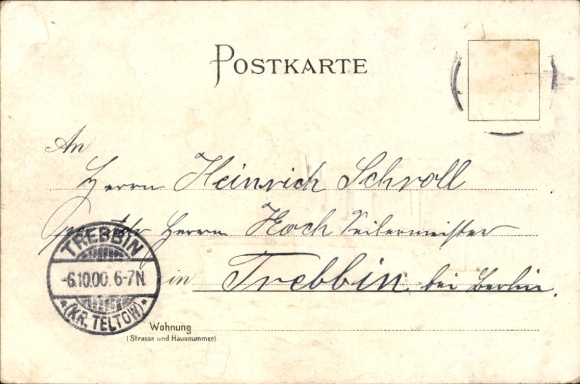 POSTKARTE
An
Herrn Heinrich Schroll
Herrn Koch Seilermeister
in Trebbin bei Berlin.
TREBBIN
-6.10.00. 6-7N.
*(KR. TELTOW)*
Wohnung
(Strasse und Hausnummer)